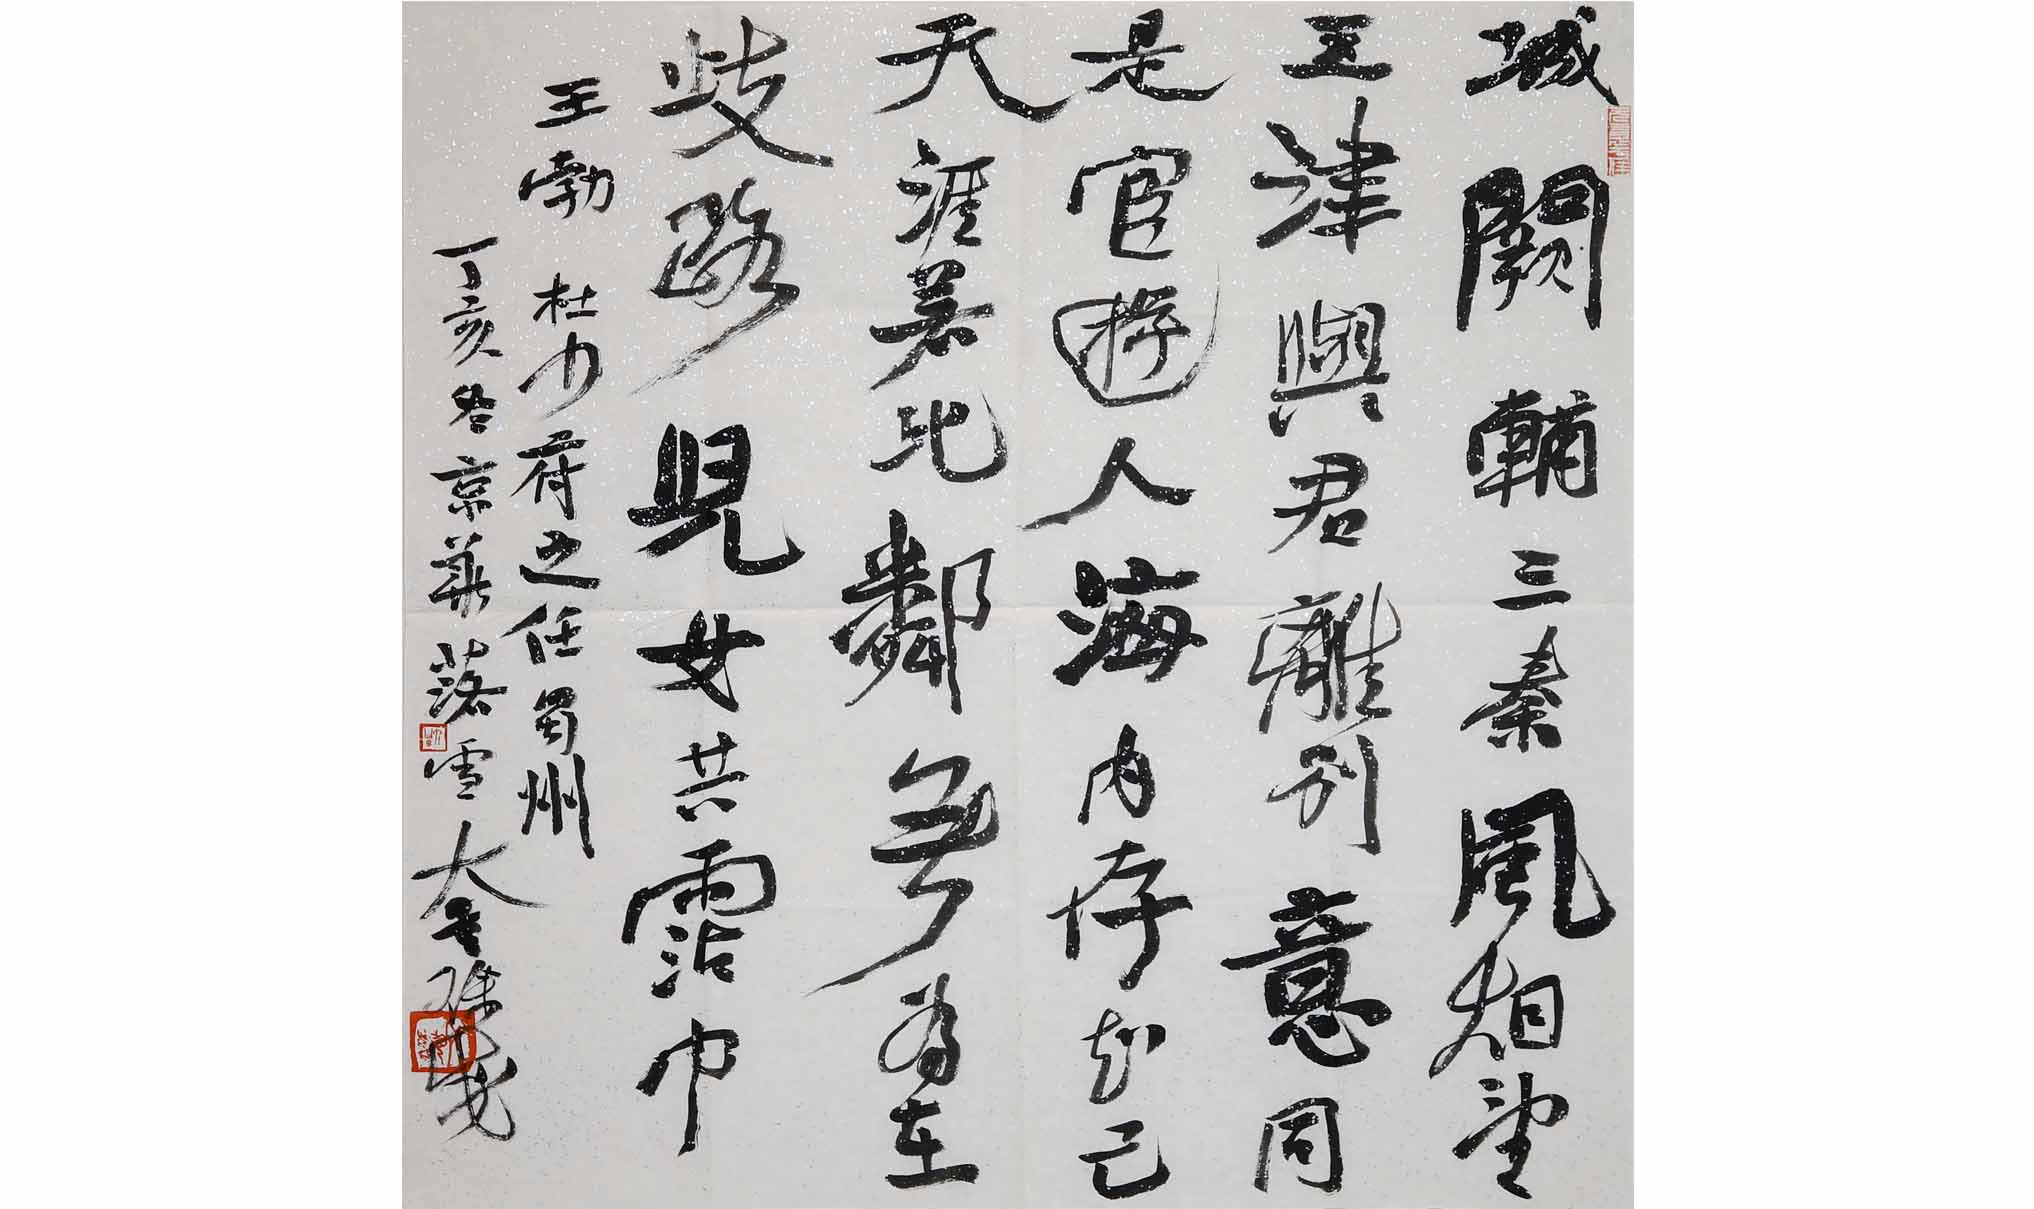 城闕輔三秦風烟望
五津與君離別意同
是宦遊人海内存知己
天涯若比鄰無為在
歧路兒女共霑巾
王勃 杜少府之任蜀州
丁亥冬京華落雪大